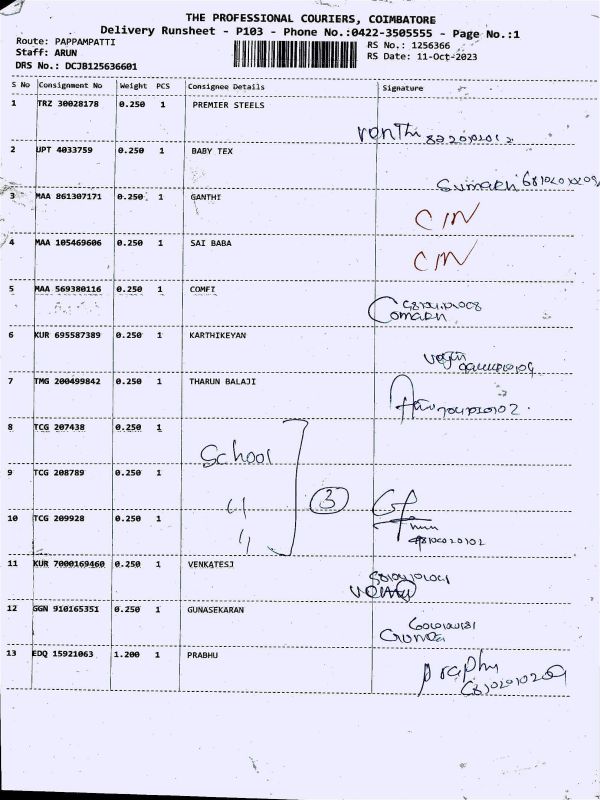 THE PROFESSIONAL COURIERS, COIMBATORE
Delivery Runsheet - P103 - Phone No.:0422-3505555 - Page No.:1
Route: PAPPAMPATTI
RS No.: 1256366
Staff: ARUN
RS Date: 11-Oct-2023
DRS No.: DCJB125636601
S No Consignment No Weight PCS Consignee Details Signature
1 TRZ 30028178 0.250 1 PREMIER STEELS
2 UPT 4033759 0.250 1 BABY TEX
3 MAA 861307171 0.250 1 GANTHI CIN
4 MAA 105469606 0.250 1 SAI BABA CIN
5 MAA 569380116 0.250 1 COMFI
6 KUR 695587389 0.250 1 KARTHIKEYAN
7 TMG 200499842 0.250 1 THARUN BALAJI
8 TCG 207438 0.250 1 School
9 TCG 208789 0.250 1 3
10 TCG 209928 0.250 1
11 KUR 7000169460 0.250 1 VENKATESJ
12 GGN 910165351 0.250 1 GUNASEKARAN
13 EDQ 15921063 1.200 1 PRABHU